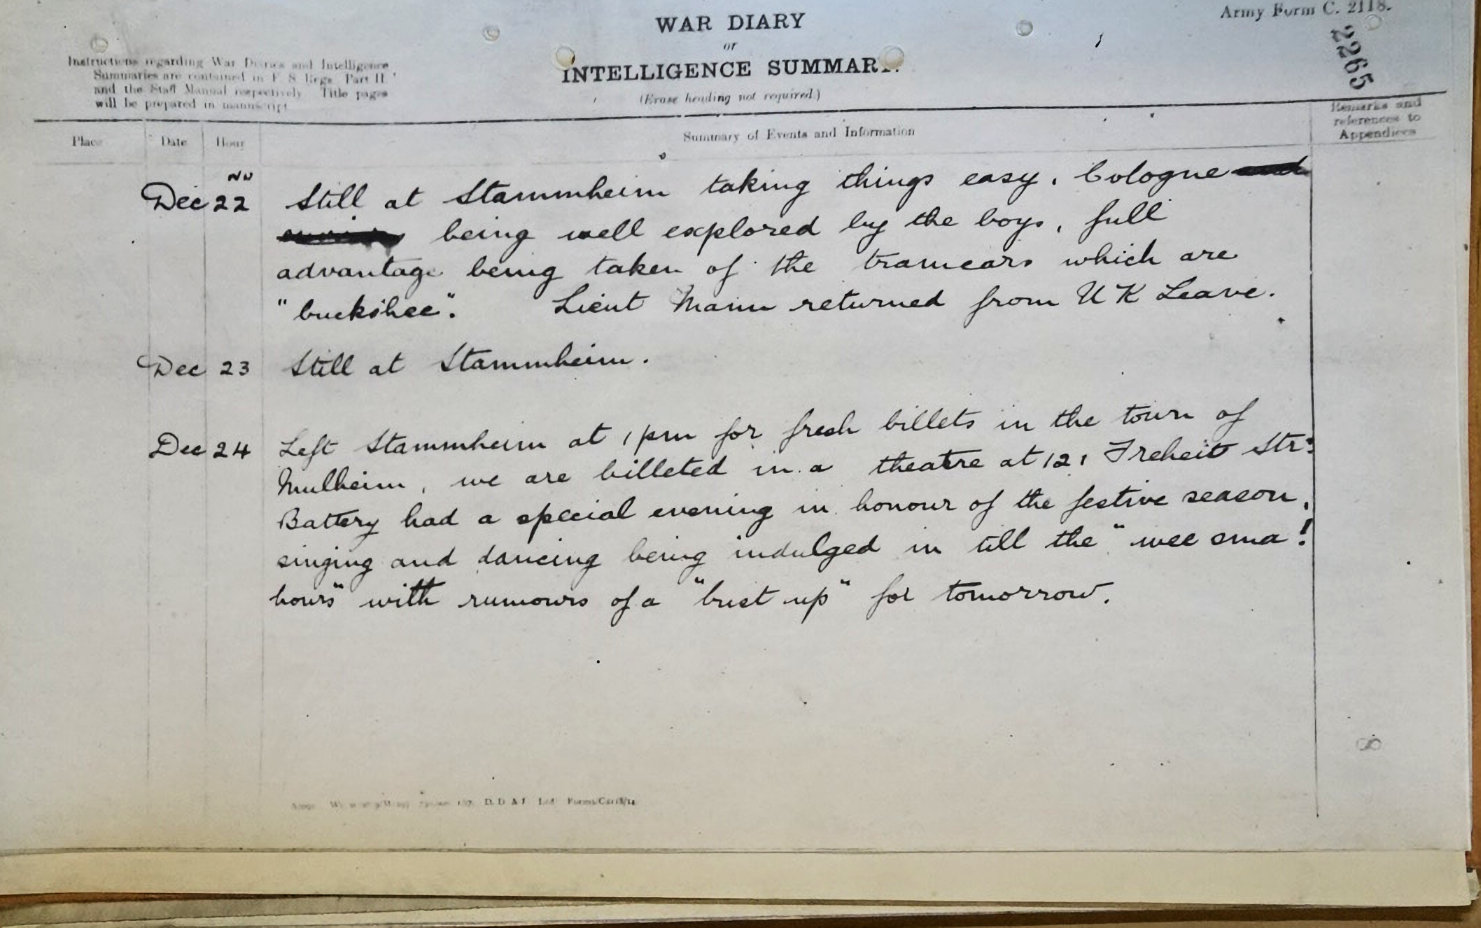 Army Form C. 2118.
WAR DIARY
or
INTELLIGENCE SUMMARY.
(Erase heading not required.)
2265
Instructions regarding War Diaries and Intelligence
Summaries are contained in F. S. Regs. Part II.
and the Staff Manual respectively. Title pages
will be prepared in manuscript.
Place Date Hour Summary of Events and Information Remarks and
references to
Appendices
Dec 22 Still at Stammheim taking things easy. Cologne and
being well explored by the boys, full
advantage being taken of the tramcars which are
"buckshee". Lieut Mann returned from UK Leave.
Dec 23 Still at Stammheim.
Dec 24 Left Stammheim at 1pm for fresh billets in the town of
Mulheim, we are billeted in a theatre at 121 Freheit Str:
Battery had a special evening in honour of the festive season,
singing and dancing being indulged in till the "wee sma'
hours" with rumours of a "bust up" for tomorrow.
8
D. D. & L. Ltd Forms/C.2118/14